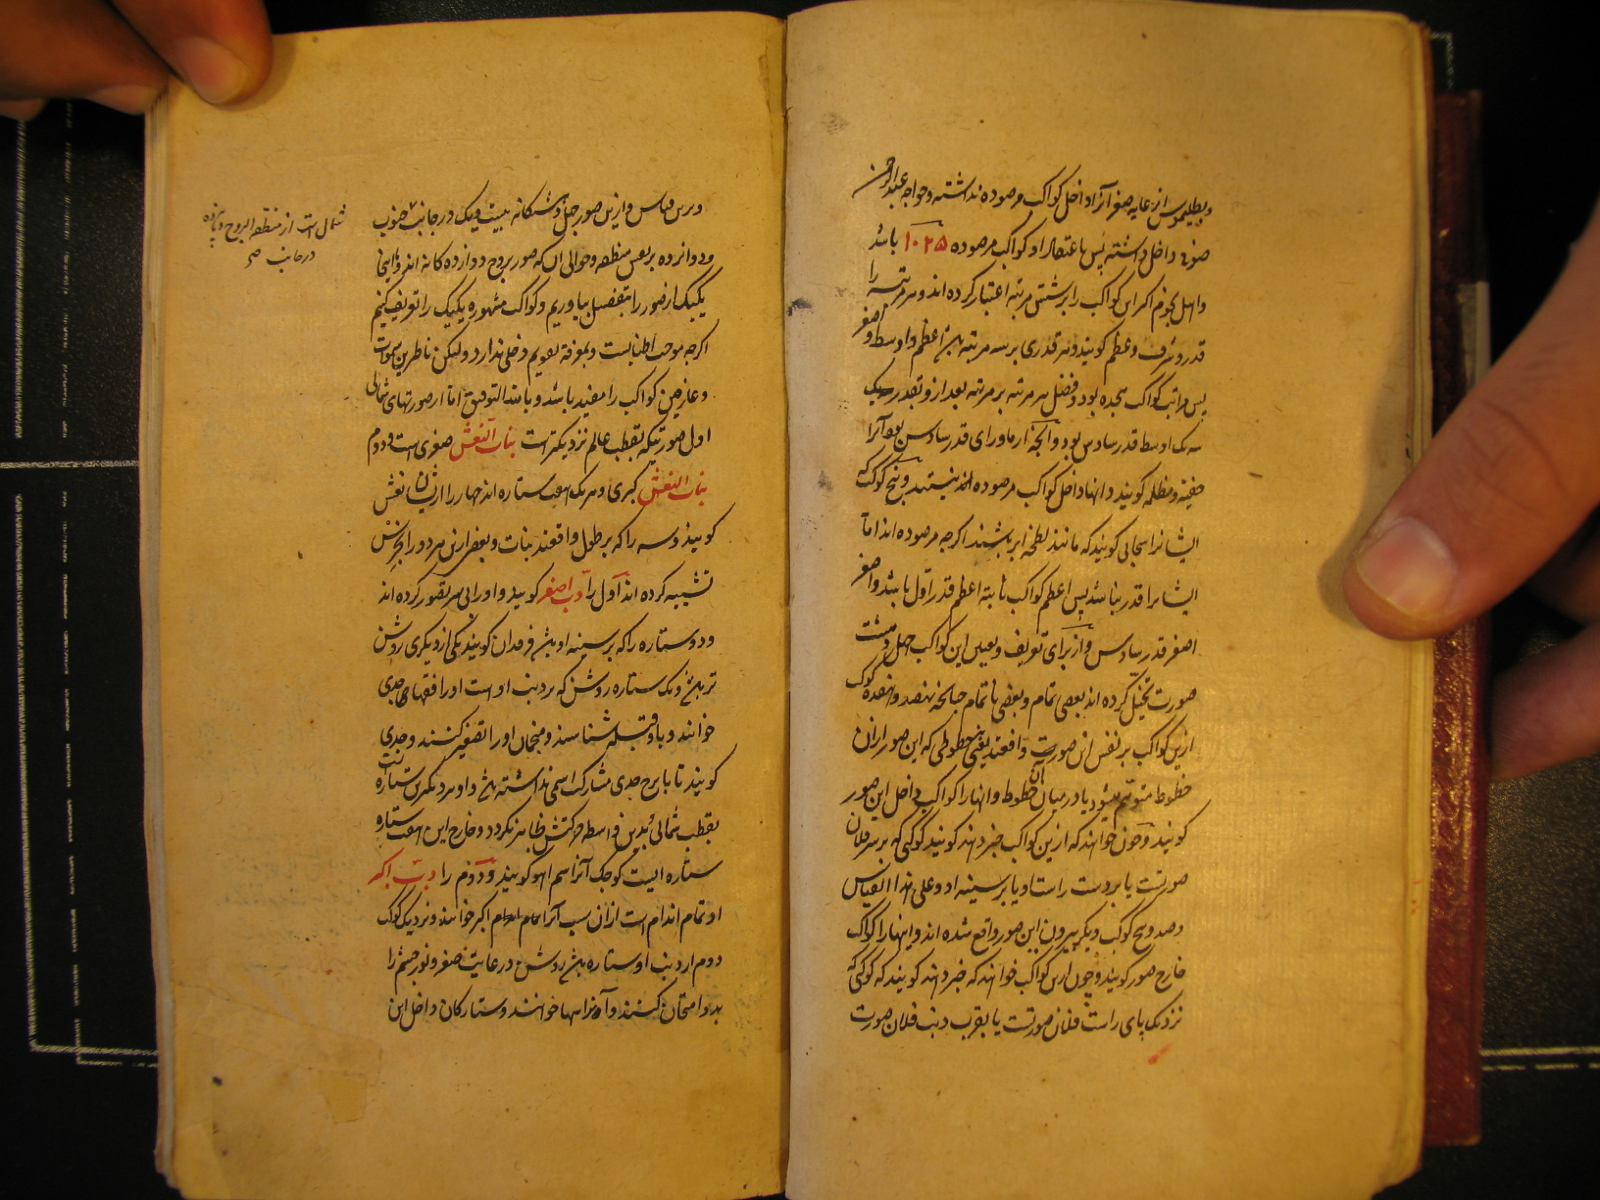 و بطلیموس از غایه صغر آنرا داخل کواکب مرصوده نداشته و خواجه عبدالرحمن
صوفی داخل داشته پس باعتقاد او کواکب مرصوده ۱۰۲۵ باشد
و اهل نجوم اکثر این کواکب را بر شش مرتبه اعتبار کرده اند و هر مرتبه را
قدر و شرف و عظم کویند و هر قدری بر سه مرتبه است اعظم و اوسط و اصغر
پس مراتب کواکب هجده بود و فضل هر مرتبه بر مرتبه بعد از و بقدر سدیک
سه یک اوسط قدر سادس بود و آنچه از ماورای قدر سادس بود آنرا
خفیه و مظلمه کویند و انها داخل کواکب مرصوده نیستند و پنج کوکب که
ایشانرا سحابی کویند که مانند لطخه ابر باشند اکرچه مرصوده اند اما
ایشانرا قدر نباشد پس اعظم کواکب ثابته اعظم قدر اول باشد و اصغر
اصغر قدر سادس و از برای تعریف و تعیین این کواکب چهل و هشت
صورت تخیل کرده اند بعضی تمام و بعضی ناتمام چنانچه نهصد و هفده کوکب
ازین کواکب بر نفس ان صورت واقعند یعنی بر خطوطی که این صور ازان
خطوط متوهم میشود یا در میان آن خطوط و انها را کواکب داخل این صور
کویند و چون خواهند که ازین کواکب خبر دهند کویند کوکبی که بر سر فلان
صورتست یا بر دست راست او یا بر سینه او و علی هذا القیاس
و صد و پنج کوکب دیکر بیرون این صور واقع شده اند و اینها را کواکب
خارج صور کویند و چون ازین کواکب خواهند که خبر دهند کویند که کوکبی که
نزدیک پای راست فلان صورتست یا بقرب ذنب فلان صورت
و برین قیاس و ازین صور چهل و هشتکانه بیست و یک در جانب جنوب
و دوازده بر نفس منطقه و حوالی آن که صور بروج دوازده کانه اند و اینجا
یکیک از صور را بتفصیل بیاوریم و کواکب مشهوره یکیک را تعریف کنیم
اکرچه موجب اطنابست و بمعرفة تقویم دخلی ندارد ولیکن ناظرین سموات
و عارفین کواکب را مفید باشد و بالله التوفیق اما از صورتهای شمالی
اول صورتیکه بقطب عالم نزدیکتر است بنات النعش صغری است و دوم
بنات النعش کبری و هر یک هفت ستاره اند چهار را ازیشان نعش
کویند و سه را که بر طول واقعند بنات و بعضی ازین هر دو را بخرس
تشبیه کرده اند اول را دب اصغر کویند و او را بی سر تصور کرده اند
و دو ستاره را که بر سینه او است فرقدان کویند یکی از دیکری روشن
تر است و یک ستاره روشن که بر ذنب او است او را فقها جدی
خوانند و باو قبله شناسند و منجمان او را تصغیر کنند و جدی
کویند تا با برج جدی مشارکت اسمی نداشته باشد و او نزدیکترین ستاره
بقطب شمالی بدین واسطه حرکتش ظاهر نکردد و خارج این هفت ستاره
ستاره ایست کوچک آنرا سم اهو کویند و دوم را دب اکبر
او تمام اندام است ازان سبب آنرا اکبر خوانند و نزدیک کوکب
دوم از ذنب او ستاره است روشن در غایت صغر و نور چشم را
بدو امتحان کنند و آنرا سها خوانند و ستارکان داخل این
شمال است از منطقة البروج و پانزده
در جانب